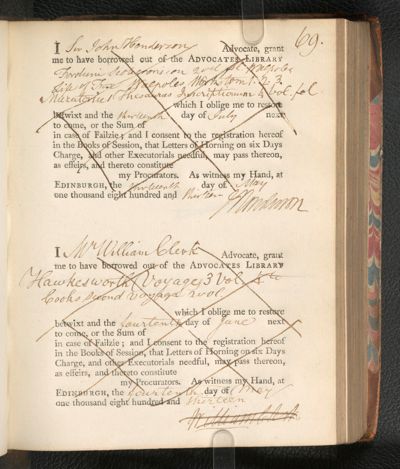 69.
I Mr John Henderson Advocate, grant
me to have borrowed out of the ADVOCATES LIBRARY
on
Life of Walpoles Works tom: 1. 2. 3
Muratorius Thesaurus Inscriptionum 4 Vol. fol
which I oblige me to restore
betwixt and the thirteenth day of July next
to come, or the Sum of
in case of Failzie; and I consent to the registration hereof
in the Books of Session, that Letters of Horning on six Days
Charge, and other Executorials needful, may pass thereon,
as effeirs, and thereto constitute
my Procurators. As witness my Hand, at
EDINBURGH, the thirteenth day of May
one thousand eight hundred and thirteen
J Henderson
I Mr William Clerk Advocate, grant
me to have borrowed out of the ADVOCATES LIBRARY
Hawkesworth Voyages 3 Vol 4to
Cooks second Voyage 2 vol
which I oblige me to restore
betwixt and the fourtenth day of June next
to come, or the Sum of
in case of Failzie; and I consent to the registration hereof
in the Books of Session, that Letters of Horning on six Days
Charge, and other Executorials needful, may pass thereon,
as effeirs, and thereto constitute
my Procurators. As witness my Hand, at
EDINBURGH, the fourtenth day of May
one thousand eight hundred and thirteen
William Clerk